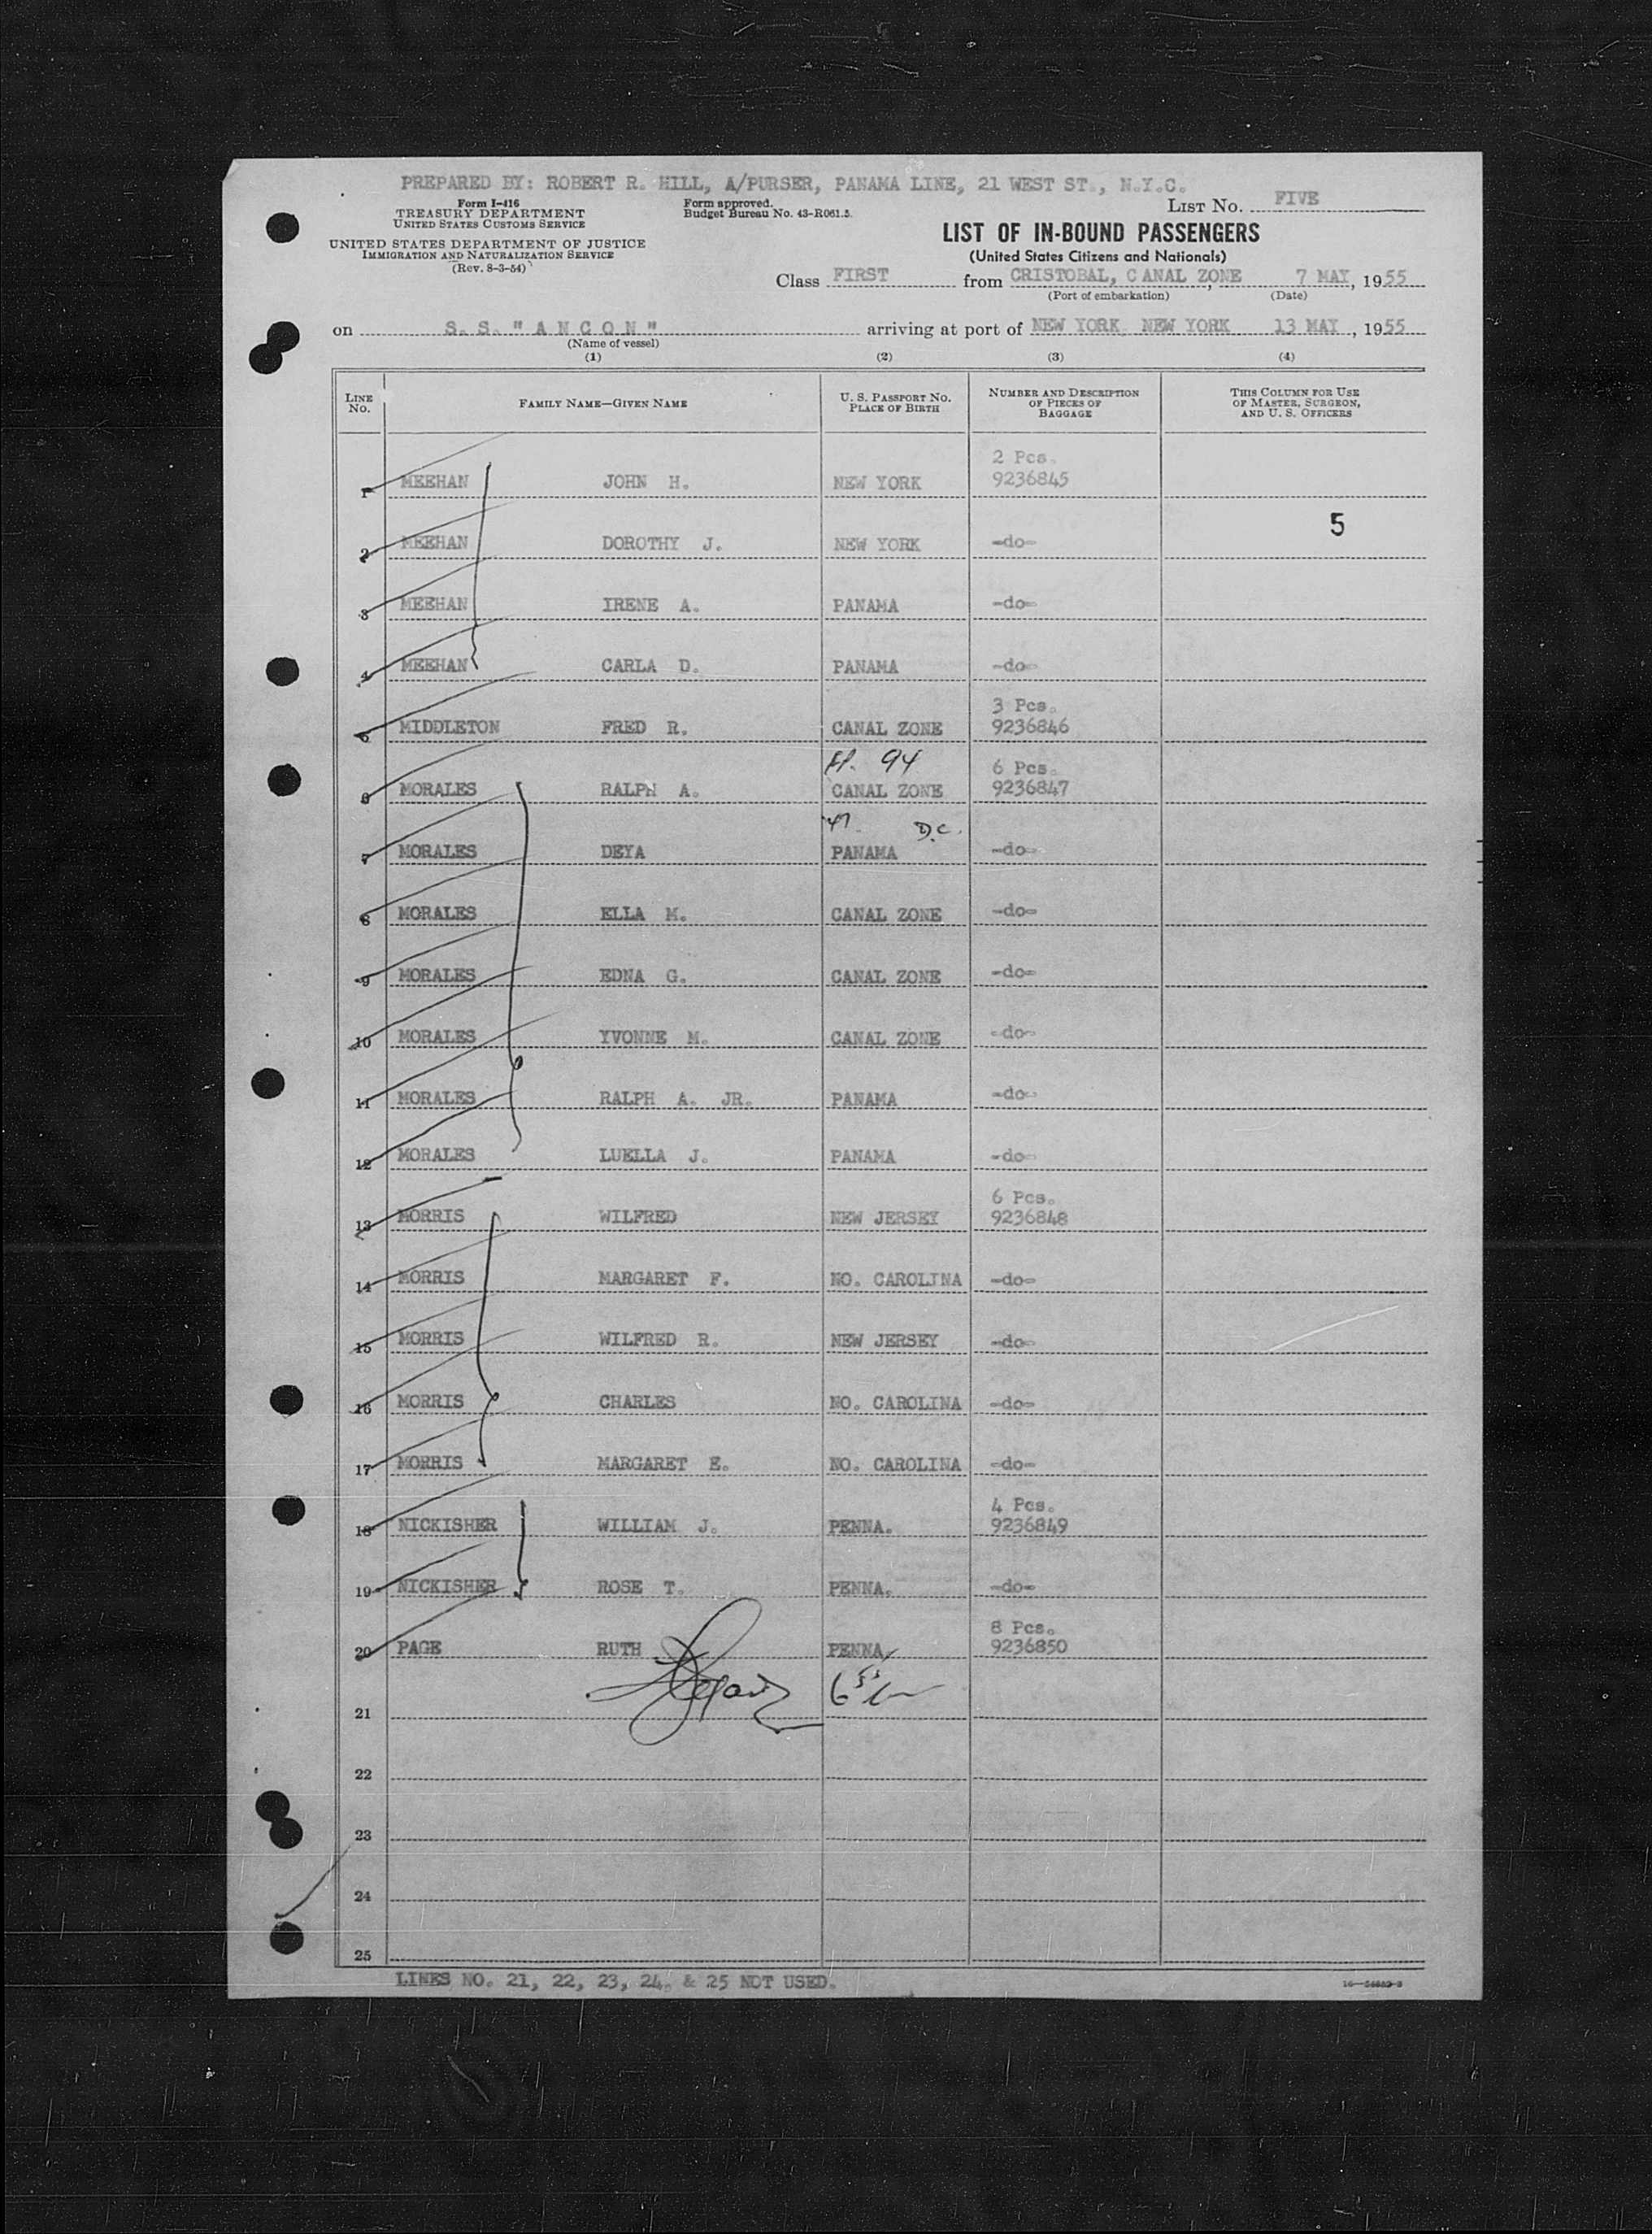 PREPARED BY: ROBERT R. HILL, A/PURSER, PANAMA LINE, 21 WEST ST., N.Y.C.
Form I-416
TREASURY DEPARTMENT
UNITED STATES CUSTOMS SERVICE
UNITED STATES DEPARTMENT OF JUSTICE
IMMIGRATION AND NATURALIZATION SERVICE
(Rev. 8-3-54)
Form approved.
Budget Bureau No. 43-R061.5.
LIST NO. FIVE
LIST OF IN-BOUND PASSENGERS
(United States Citizens and Nationals)
Class FIRST from CRISTOBAL, CANAL ZONE, 7 MAY, 1955
(Port of embarkation) (Date)
on S. S. "A N C O N" arriving at port of NEW YORK NEW YORK 13 MAY, 1955
(Name of vessel)
(1) (2) (3) (4)
LINE NO. FAMILY NAME—GIVEN NAME U. S. PASSPORT NO. PLACE OF BIRTH NUMBER AND DESCRIPTION OF PIECES OF BAGGAGE THIS COLUMN FOR USE OF MASTER, SURGEON, AND U. S. OFFICERS
2 Pcs.
1 MEEHAN JOHN H. NEW YORK 9236845
5
2 MEEHAN DOROTHY J. NEW YORK -do-
3 MEEHAN IRENE A. PANAMA -do-
4 MEEHAN CARLA D. PANAMA -do-
3 Pcs.
5 MIDDLETON FRED R. CANAL ZONE 9236846
94 6 Pcs.
6 MORALES RALPH A. CANAL ZONE 9236847
D.C.
7 MORALES DEYA PANAMA -do-
8 MORALES ELLA M. CANAL ZONE -do-
9 MORALES EDNA G. CANAL ZONE -do-
10 MORALES YVONNE M. CANAL ZONE -do-
11 MORALES RALPH A. JR. PANAMA -do-
12 MORALES LUELLA J. PANAMA -do-
6 Pcs.
13 MORRIS WILFRED NEW JERSEY 9236848
14 MORRIS MARGARET F. NO. CAROLINA -do-
15 MORRIS WILFRED R. NEW JERSEY -do-
16 MORRIS CHARLES NO. CAROLINA -do-
17 MORRIS MARGARET E. NO. CAROLINA -do-
4 Pcs.
18 NICKISHER WILLIAM J. PENNA. 9236849
19 NICKISHER ROSE T. PENNA. -do-
8 Pcs.
20 PAGE RUTH PENNA. 9236850
21
22
23
24
25
LINES NO. 21, 22, 23, 24, & 25 NOT USED.